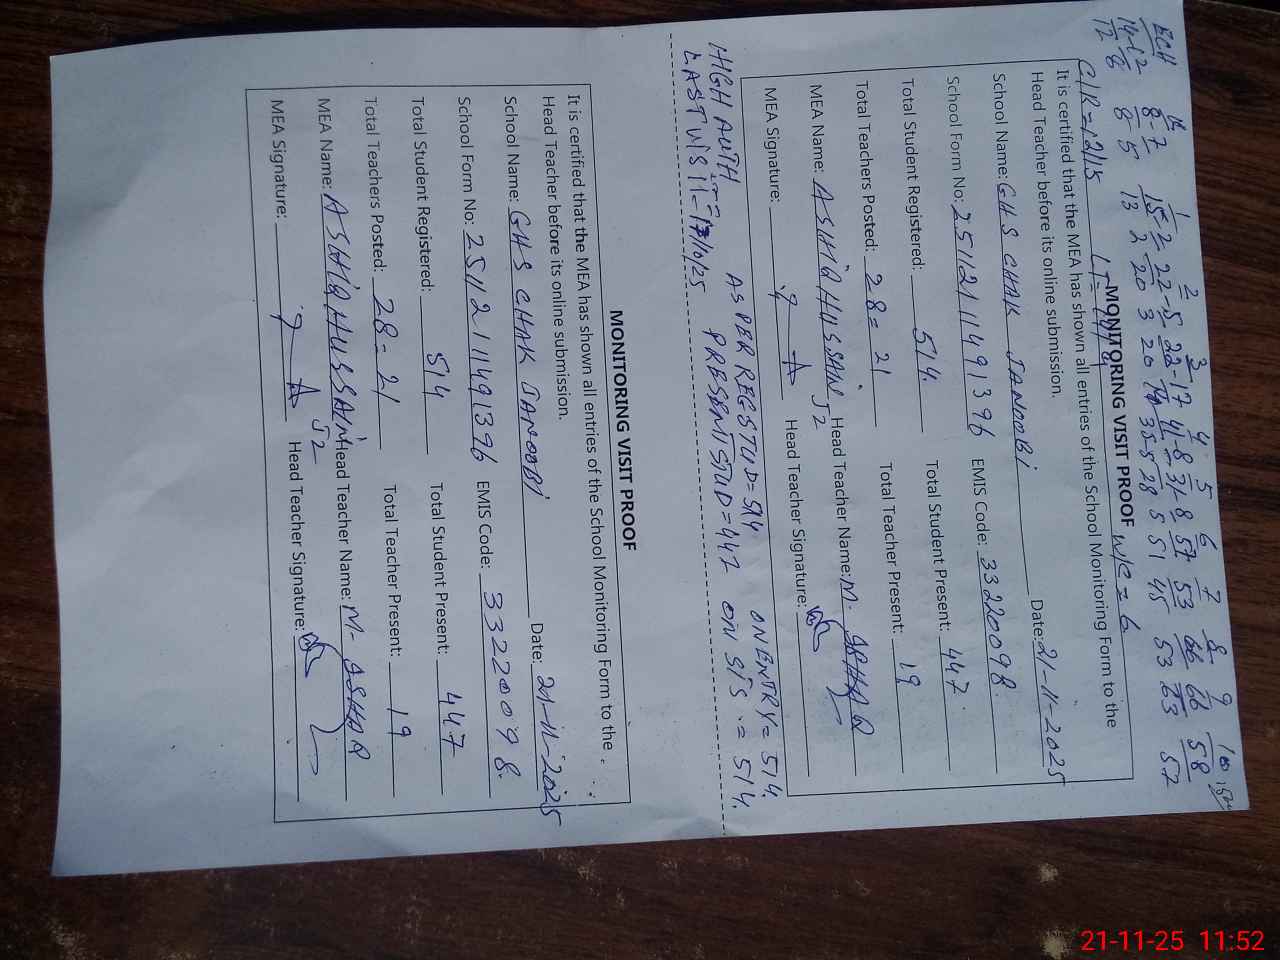 ECH 1 2 3 4 5 6 7 8 9 10
C/R=12/15 W/C=6
MONITORING VISIT PROOF
It is certified that the MEA has shown all entries of the School Monitoring Form to the
Head Teacher before its online submission.
School Name: GHS CHAK JANOOBI Date: 21-11-2025
School Form No: 2511211491396 EMIS Code: 33220098
Total Student Registered: 514 Total Student Present: 447
Total Teachers Posted: 28=21 Total Teacher Present: 19
MEA Name: ASHIQ HUSSAIN J2 Head Teacher Name: M. ASHAQ
MEA Signature: Head Teacher Signature:
HIGH AUTH AS PER REG STUD=514 ON ENTRY=514
LAST VISIT=17/10/25 PRESENT STUD=447 ON SIS=514
MONITORING VISIT PROOF
It is certified that the MEA has shown all entries of the School Monitoring Form to the
Head Teacher before its online submission.
School Name: GHS CHAK JANOOBI Date: 21-11-2025
School Form No: 2511211491396 EMIS Code: 33220098
Total Student Registered: 514 Total Student Present: 447
Total Teachers Posted: 28=21 Total Teacher Present: 19
MEA Name: ASHIQ HUSSAIN J2 Head Teacher Name: M. ASHAQ
MEA Signature: Head Teacher Signature:
21-11-25 11:52